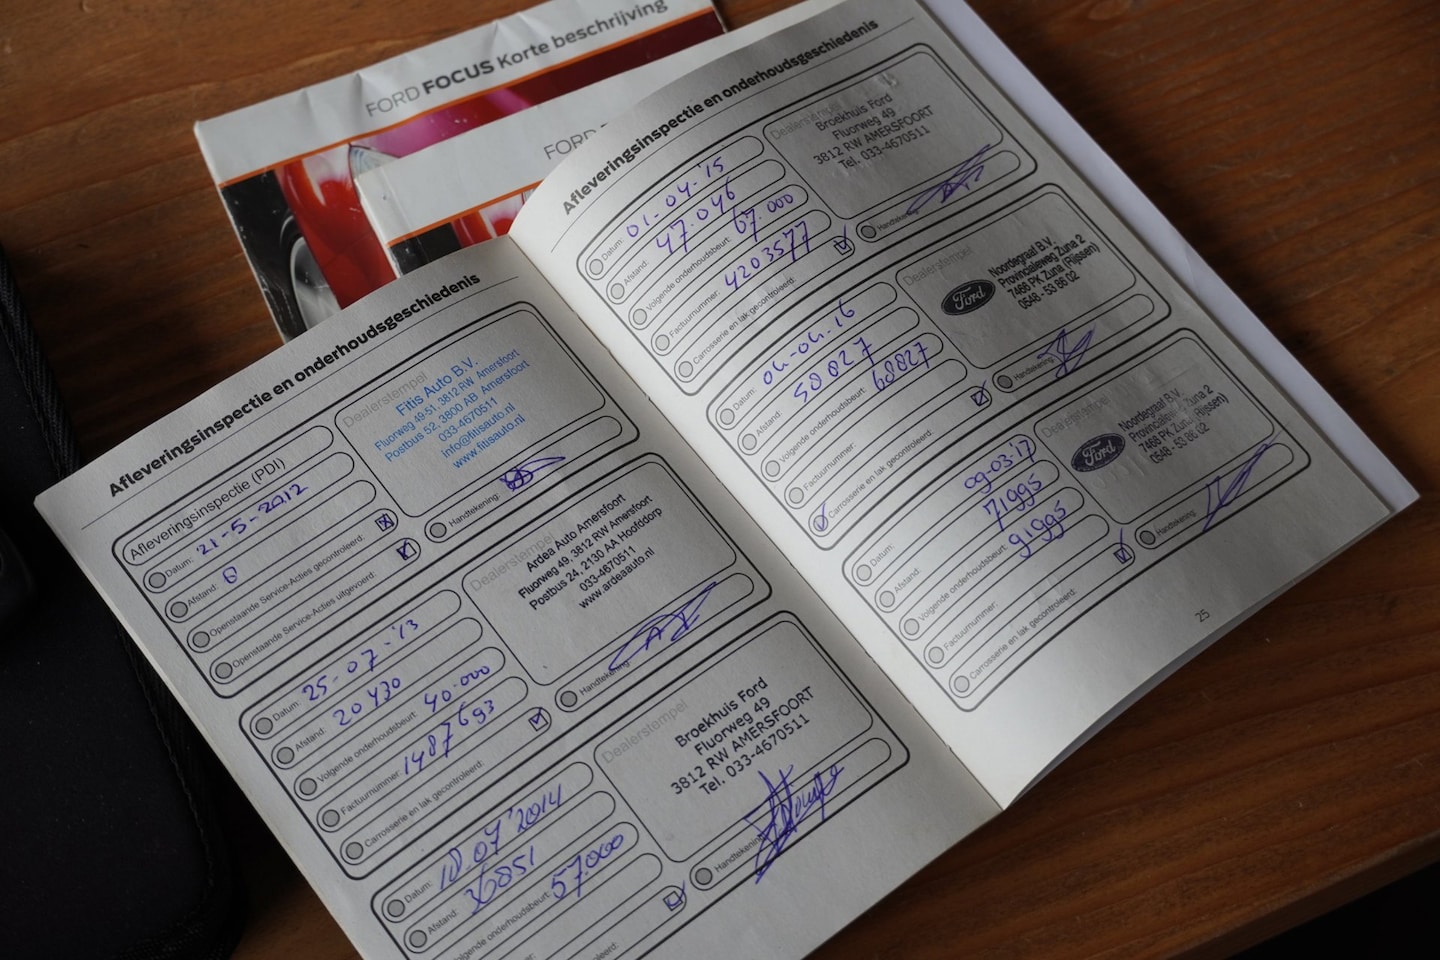 FORD FOCUS Korte beschrijving
FORD
Afleveringsinspectie en onderhoudsgeschiedenis
Afleveringsinspectie (PDI)
Datum: 21-5-2012
Afstand: 0
Openstaande Service-Acties gecontroleerd:
Openstaande Service-Acties uitgevoerd:
Dealerstempel
Fitis Auto B.V.
Fluorweg 49-51, 3812 RW Amersfoort
Postbus 52, 3800 AB Amersfoort
033-4670511
info@fitisauto.nl
www.fitisauto.nl
Handtekening:
Datum: 25-07-'13
Afstand: 20430
Volgende onderhoudsbeurt: 40.000
Factuurnummer: 1487693
Carrosserie en lak gecontroleerd:
Dealerstempel
Ardea Auto Amersfoort
Fluorweg 49, 3812 RW Amersfoort
Postbus 24, 2130 AA Hoofddorp
033-4670511
www.ardeaauto.nl
Handtekening:
Datum: 18.07'2014
Afstand: 36851
Volgende onderhoudsbeurt: 57.000
Dealerstempel
Broekhuis Ford
Fluorweg 49
3812 RW AMERSFOORT
Tel. 033-4670511
Handtekening:
Afleveringsinspectie en onderhoudsgeschiedenis
Datum: 01-04-'15
Afstand: 47.046
Volgende onderhoudsbeurt: 67.000
Factuurnummer: 4203577
Carrosserie en lak gecontroleerd:
Dealerstempel
Broekhuis Ford
Fluorweg 49
3812 RW AMERSFOORT
Tel. 033-4670511
Handtekening:
Datum: 04-04-16
Afstand: 58827
Volgende onderhoudsbeurt: 68827
Factuurnummer:
Carrosserie en lak gecontroleerd:
Dealerstempel
Ford
Noordegraaf B.V.
Provincialeweg Zuna 2
7466 PK Zuna (Rijssen)
0548 - 53 86 02
Handtekening:
Datum: 09-03-'17
Afstand: 71995
Volgende onderhoudsbeurt: 91995
Factuurnummer:
Carrosserie en lak gecontroleerd:
Dealerstempel
Ford
Noordegraaf B.V.
Zuna 2
7466 PK Rijssen)
0548 - 53 86 02
Handtekening:
25